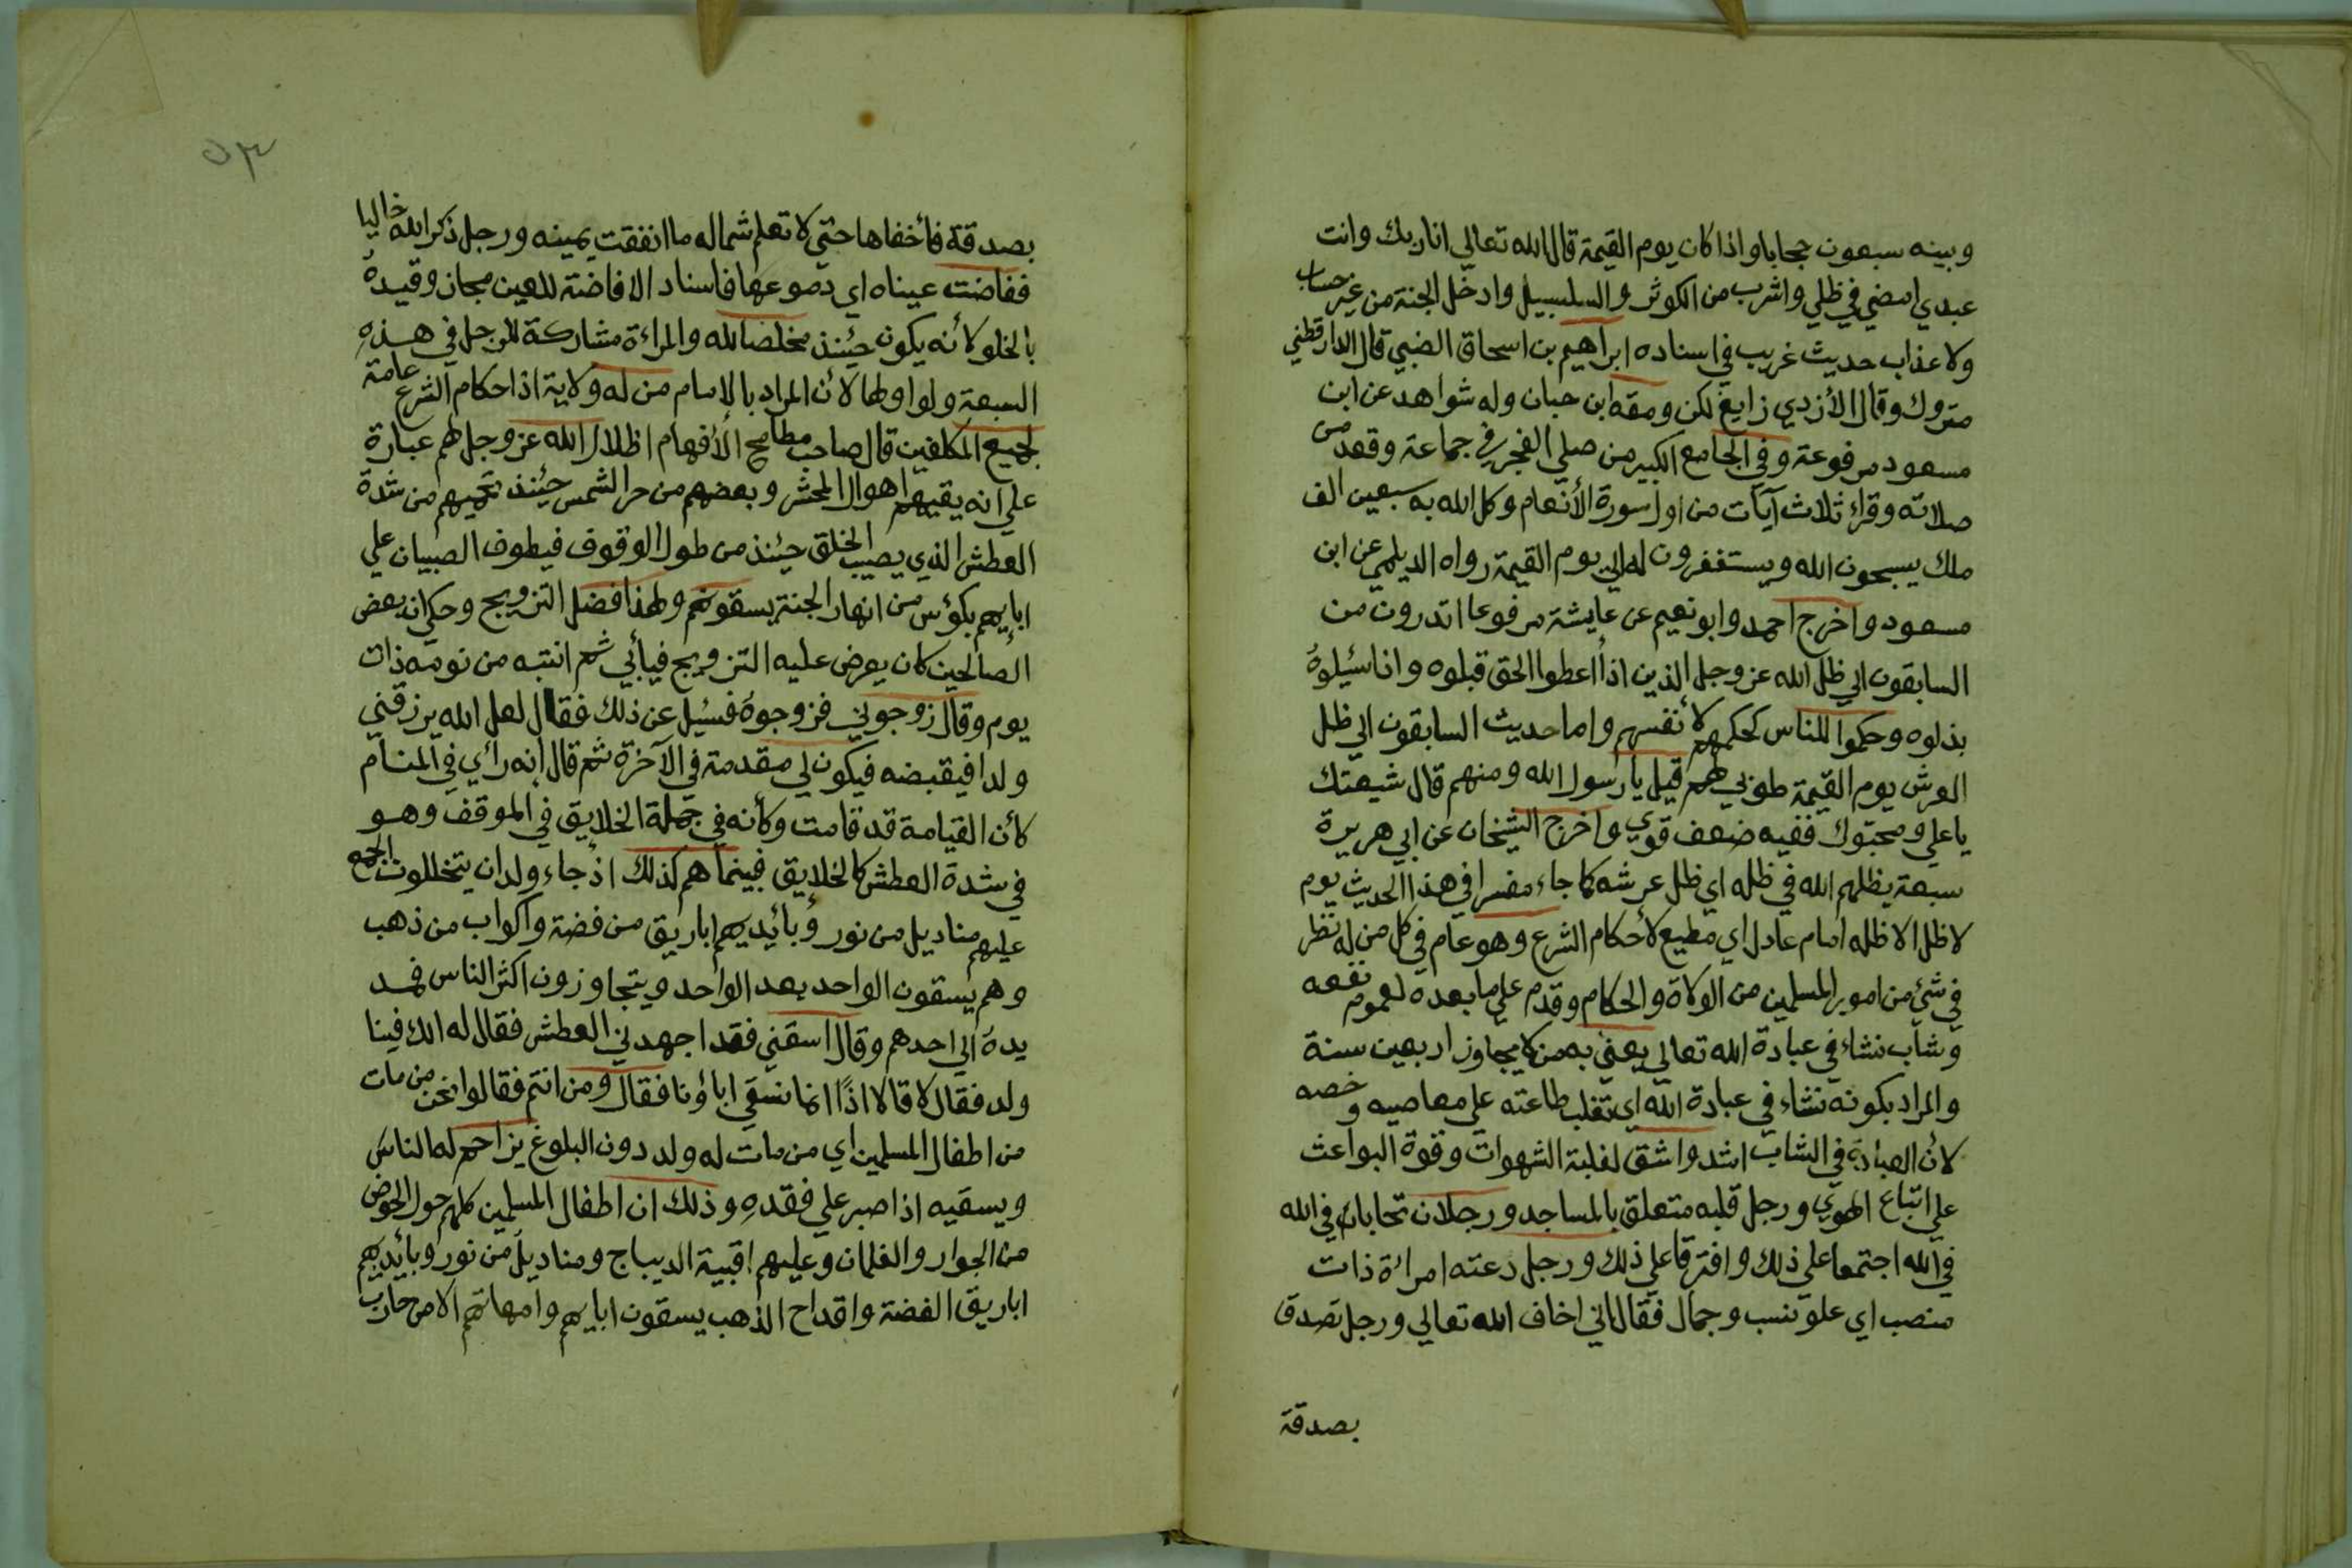 وبينه سبعون حجابا واذا كان يوم القيمة قال الله تعالي انا ربك وانت
عبدي امضي في ظلي واشرب من الكوثر والسلسبيل وادخل الجنة من غير حساب
ولا عذاب حديث غريب في اسناده ابراهيم بن اسحاق الضبي قال الدارقطني
متروك وقال الأزدي زايغ لكن ومقه ابن حبان وله شواهد عن ابن
مسعود مرفوعة وفي الجامع الكبير من صلي الفجر في جماعة وقعد من
صلاته وقراء ثلاث آيآت من اول سورة الأنعام وكل الله به سبعين الف
ملك يسبحون الله ويستغفرون له الي يوم القيمة رواه الديلمي عن ابن
مسعود واخرج احمد وابو نعيم عن عايشة مرفوعا اتدرون من
السابقون الي ظل الله عز وجل الذين اذا اعطوا الحق قبلوه واذا سئيلوه
بذلوه وحكموا للناس كحكمهم لأنفسهم واما حديث السابقون الي ظل
العرش يوم القيمة طوبي لهم قيل يا رسول الله ومنهم قال شيعتك
يا علي ومحبوك ففيه ضعف قوي واخرج الشيخان عن ابي هريرة
سبعة يظلهم الله في ظله اي ظل عرشه كما جاء مفسرا في هذا الحديث يوم
لا ظل الا ظله امام عادل اي مطيع لأحكام الشرع وهو عام في كل من له نظر
في شئ من امور المسلمين من الولاة والحكام وقدم علي ما بعده لعموم نفعه
وشاب نشاء في عبادة الله تعالي يعني به من لا يجاوز اربعين سنة
والمراد بكونه نشاء في عبادة الله اي تغلب طاعته علي معاصيه وخصه
لأن العبادة في الشاب اشد واشق لغلبة الشهوات وقوة البواعث
علي اتباع الهوي ورجل قلبه متعلق بالمساجد ورجلان تحابا في الله
في الله اجتمعا علي ذلك وافترقا علي ذلك ورجل دعته امرائة ذات
منصب اي علو نسب وجمال فقال اني اخاف الله تعالي ورجل تصدق
بصدقة
٥٣
بصدقة فأخفاها حتي لا تعلم شماله ما انفقت يمينه ورجل ذكر الله خاليا
ففاضت عيناه اي دموعها فاسناد الافاضة للعين مجاز وقيده
بالخلو لأنه يكون حيئنذ مخلصا لله والمراءة مشاركة للرجل في هذه
السبعة ولو اولها لأن المراد بالامام من له ولاية اذ احكام الشرع عامة
لجميع المكلفين قال صاحب مطامح الأفهام اظلال الله عز وجل لهم عبارة
علي انه يقيهم اهوال المحشر وبعضهم من حر الشمس حيئنذ تحميهم من شدة
العطش الذي يصيب الخلق حيئنذ من طول الوقوف فيطوف الصبيان علي
ابايهم بكؤس من انهار الجنة يسقونهم ولهذا فضل التزويج وحكي ان بعض
الصالحين كان يعرض عليه التزويج فيأبي ثم انتبه من نومه ذات
يوم وقال زوجوني فزوجوه فسئيل عن ذلك فقال لعل الله يرزقني
ولدا فيقبضه فيكون لي مقدمة في الآخرة ثم قال انه رأي في المنام
كأن القيامة قد قامت وكأنه في جملة الخلايق في الموقف وهو
في شدة العطش كالخلايق فبينما هم كذلك اذ جاء ولدان يتخللون الجمع
عليهم مناديل من نور وبأيديهم اباريق من فضة واكواب من ذهب
وهم يسقون الواحد بعد الواحد ويتجاوزون اكثر الناس فمد
يده الي احدهم وقال اسقني فقد اجهدني العطش فقال له الك فينا
ولد فقال لا قال لا اذًا انما نسقي اباؤنا فقال ومن انتم فقالوا نحن من مات
من اطفال المسلمين اي من مات له ولد دون البلوغ يزاحم له الناس
ويسقيه اذا صبر علي فقده وذلك ان اطفال المسلمين كلهم حول الحوض
من الجوار والغلمان وعليهم اقبية الديباج ومناديل من نور وبأيديهم
اباريق الفضة واقداح الذهب يسقون ابايهم وامهاتهم الا من حارب